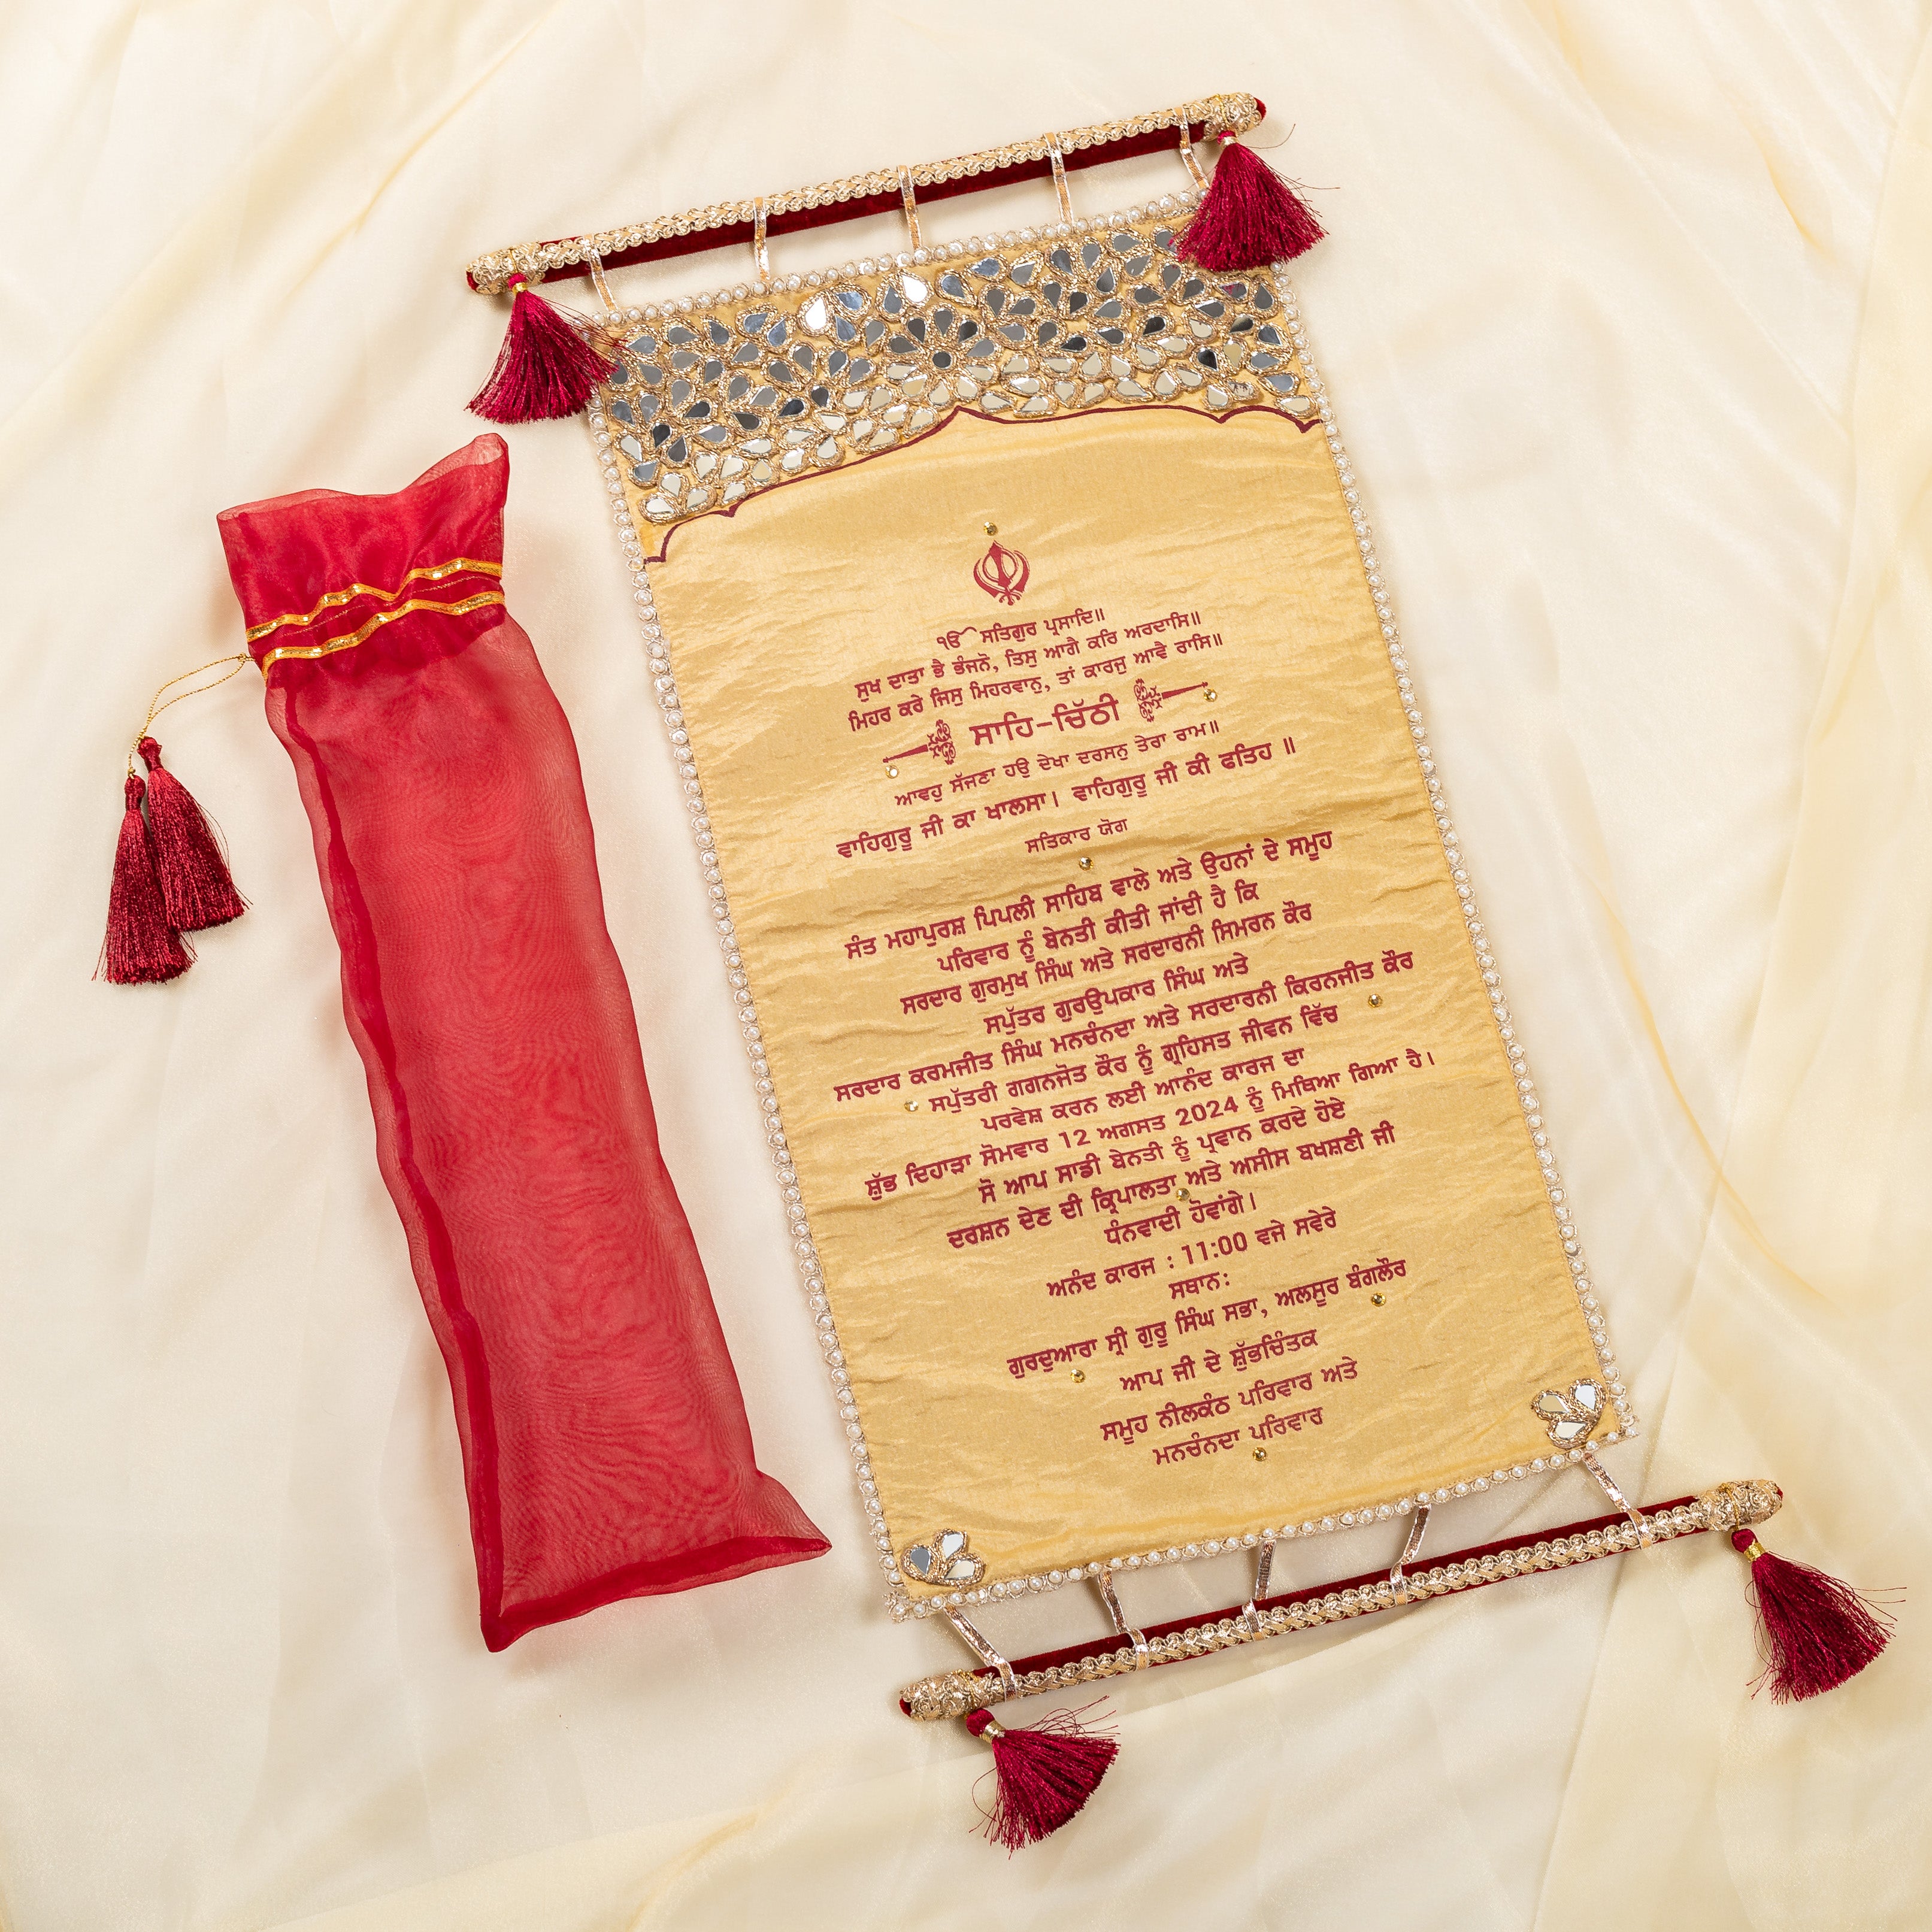 ੴ ਸਤਿਗੁਰ ਪ੍ਰਸਾਦਿ॥
ਸੁਖ ਦਾਤਾ ਭੈ ਭੰਜਨੋ, ਤਿਸੁ ਆਗੈ ਕਰਿ ਅਰਦਾਸਿ॥
ਮਿਹਰ ਕਰੇ ਜਿਸੁ ਮਿਹਰਵਾਨੁ, ਤਾਂ ਕਾਰਜੁ ਆਵੈ ਰਾਸਿ॥
ਸਾਹਿ-ਚਿੱਠੀ
ਆਵਹੁ ਸੱਜਣਾ ਹਉ ਦੇਖਾ ਦਰਸਨੁ ਤੇਰਾ ਰਾਮ॥
ਵਾਹਿਗੁਰੂ ਜੀ ਕਾ ਖਾਲਸਾ। ਵਾਹਿਗੁਰੂ ਜੀ ਕੀ ਫਤਿਹ ॥
ਸਤਿਕਾਰ ਯੋਗ
ਸੰਤ ਮਹਾਪੁਰਸ਼ ਪਿਪਲੀ ਸਾਹਿਬ ਵਾਲੇ ਅਤੇ ਉਹਨਾਂ ਦੇ ਸਮੂਹ
ਪਰਿਵਾਰ ਨੂੰ ਬੇਨਤੀ ਕੀਤੀ ਜਾਂਦੀ ਹੈ ਕਿ
ਸਰਦਾਰ ਗੁਰਮੁਖ ਸਿੰਘ ਅਤੇ ਸਰਦਾਰਨੀ ਸਿਮਰਨ ਕੌਰ
ਸਪੁੱਤਰ ਗੁਰਉਪਕਾਰ ਸਿੰਘ ਅਤੇ
ਸਰਦਾਰ ਕਰਮਜੀਤ ਸਿੰਘ ਮਨਚੰਨਦਾ ਅਤੇ ਸਰਦਾਰਨੀ ਕਿਰਨਜੀਤ ਕੌਰ
ਸਪੁੱਤਰੀ ਗਗਨਜੋਤ ਕੌਰ ਨੂੰ ਗ੍ਰਹਿਸਤ ਜੀਵਨ ਵਿੱਚ
ਪਰਵੇਸ਼ ਕਰਨ ਲਈ ਆਨੰਦ ਕਾਰਜ ਦਾ
ਸ਼ੁੱਭ ਦਿਹਾੜਾ ਸੋਮਵਾਰ 12 ਅਗਸਤ 2024 ਨੂੰ ਮਿਥਿਆ ਗਿਆ ਹੈ।
ਸੋ ਆਪ ਸਾਡੀ ਬੇਨਤੀ ਨੂੰ ਪ੍ਰਵਾਨ ਕਰਦੇ ਹੋਏ
ਦਰਸ਼ਨ ਦੇਣ ਦੀ ਕ੍ਰਿਪਾਲਤਾ ਅਤੇ ਅਸੀਸ ਬਖਸ਼ਣੀ ਜੀ
ਧੰਨਵਾਦੀ ਹੋਵਾਂਗੇ।
ਅਨੰਦ ਕਾਰਜ : 11:00 ਵਜੇ ਸਵੇਰੇ
ਸਥਾਨ:
ਗੁਰਦੁਆਰਾ ਸ੍ਰੀ ਗੁਰੂ ਸਿੰਘ ਸਭਾ, ਅਲਸੂਰ ਬੰਗਲੌਰ
ਆਪ ਜੀ ਦੇ ਸ਼ੁੱਭਚਿੰਤਕ
ਸਮੂਹ ਨੀਲਕੰਠ ਪਰਿਵਾਰ ਅਤੇ
ਮਨਚੰਨਦਾ ਪਰਿਵਾਰ